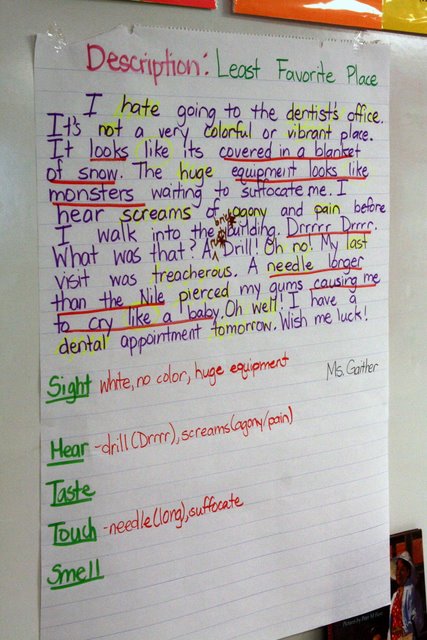 Description: Least Favorite Place
I hate going to the dentist's office.
It's not a very colorful or vibrant place.
It looks like its covered in a blanket
of snow. The huge equipment looks like
monsters waiting to suffocate me. I
hear screams of agony and pain before
I walk into the building. Drrrrr Drrrr.
What was that? A Drill! Oh no! My last
visit was treacherous. A needle longer
than the Nile pierced my gums causing me
to cry like a baby. Oh well! I have a
dental appointment tomorrow. Wish me luck!
Ms. Gaither
Sight white, no color, huge equipment
Hear -drill (Drrrr), screams (agony/pain)
Taste
Touch -needle (long), suffocate
Smell